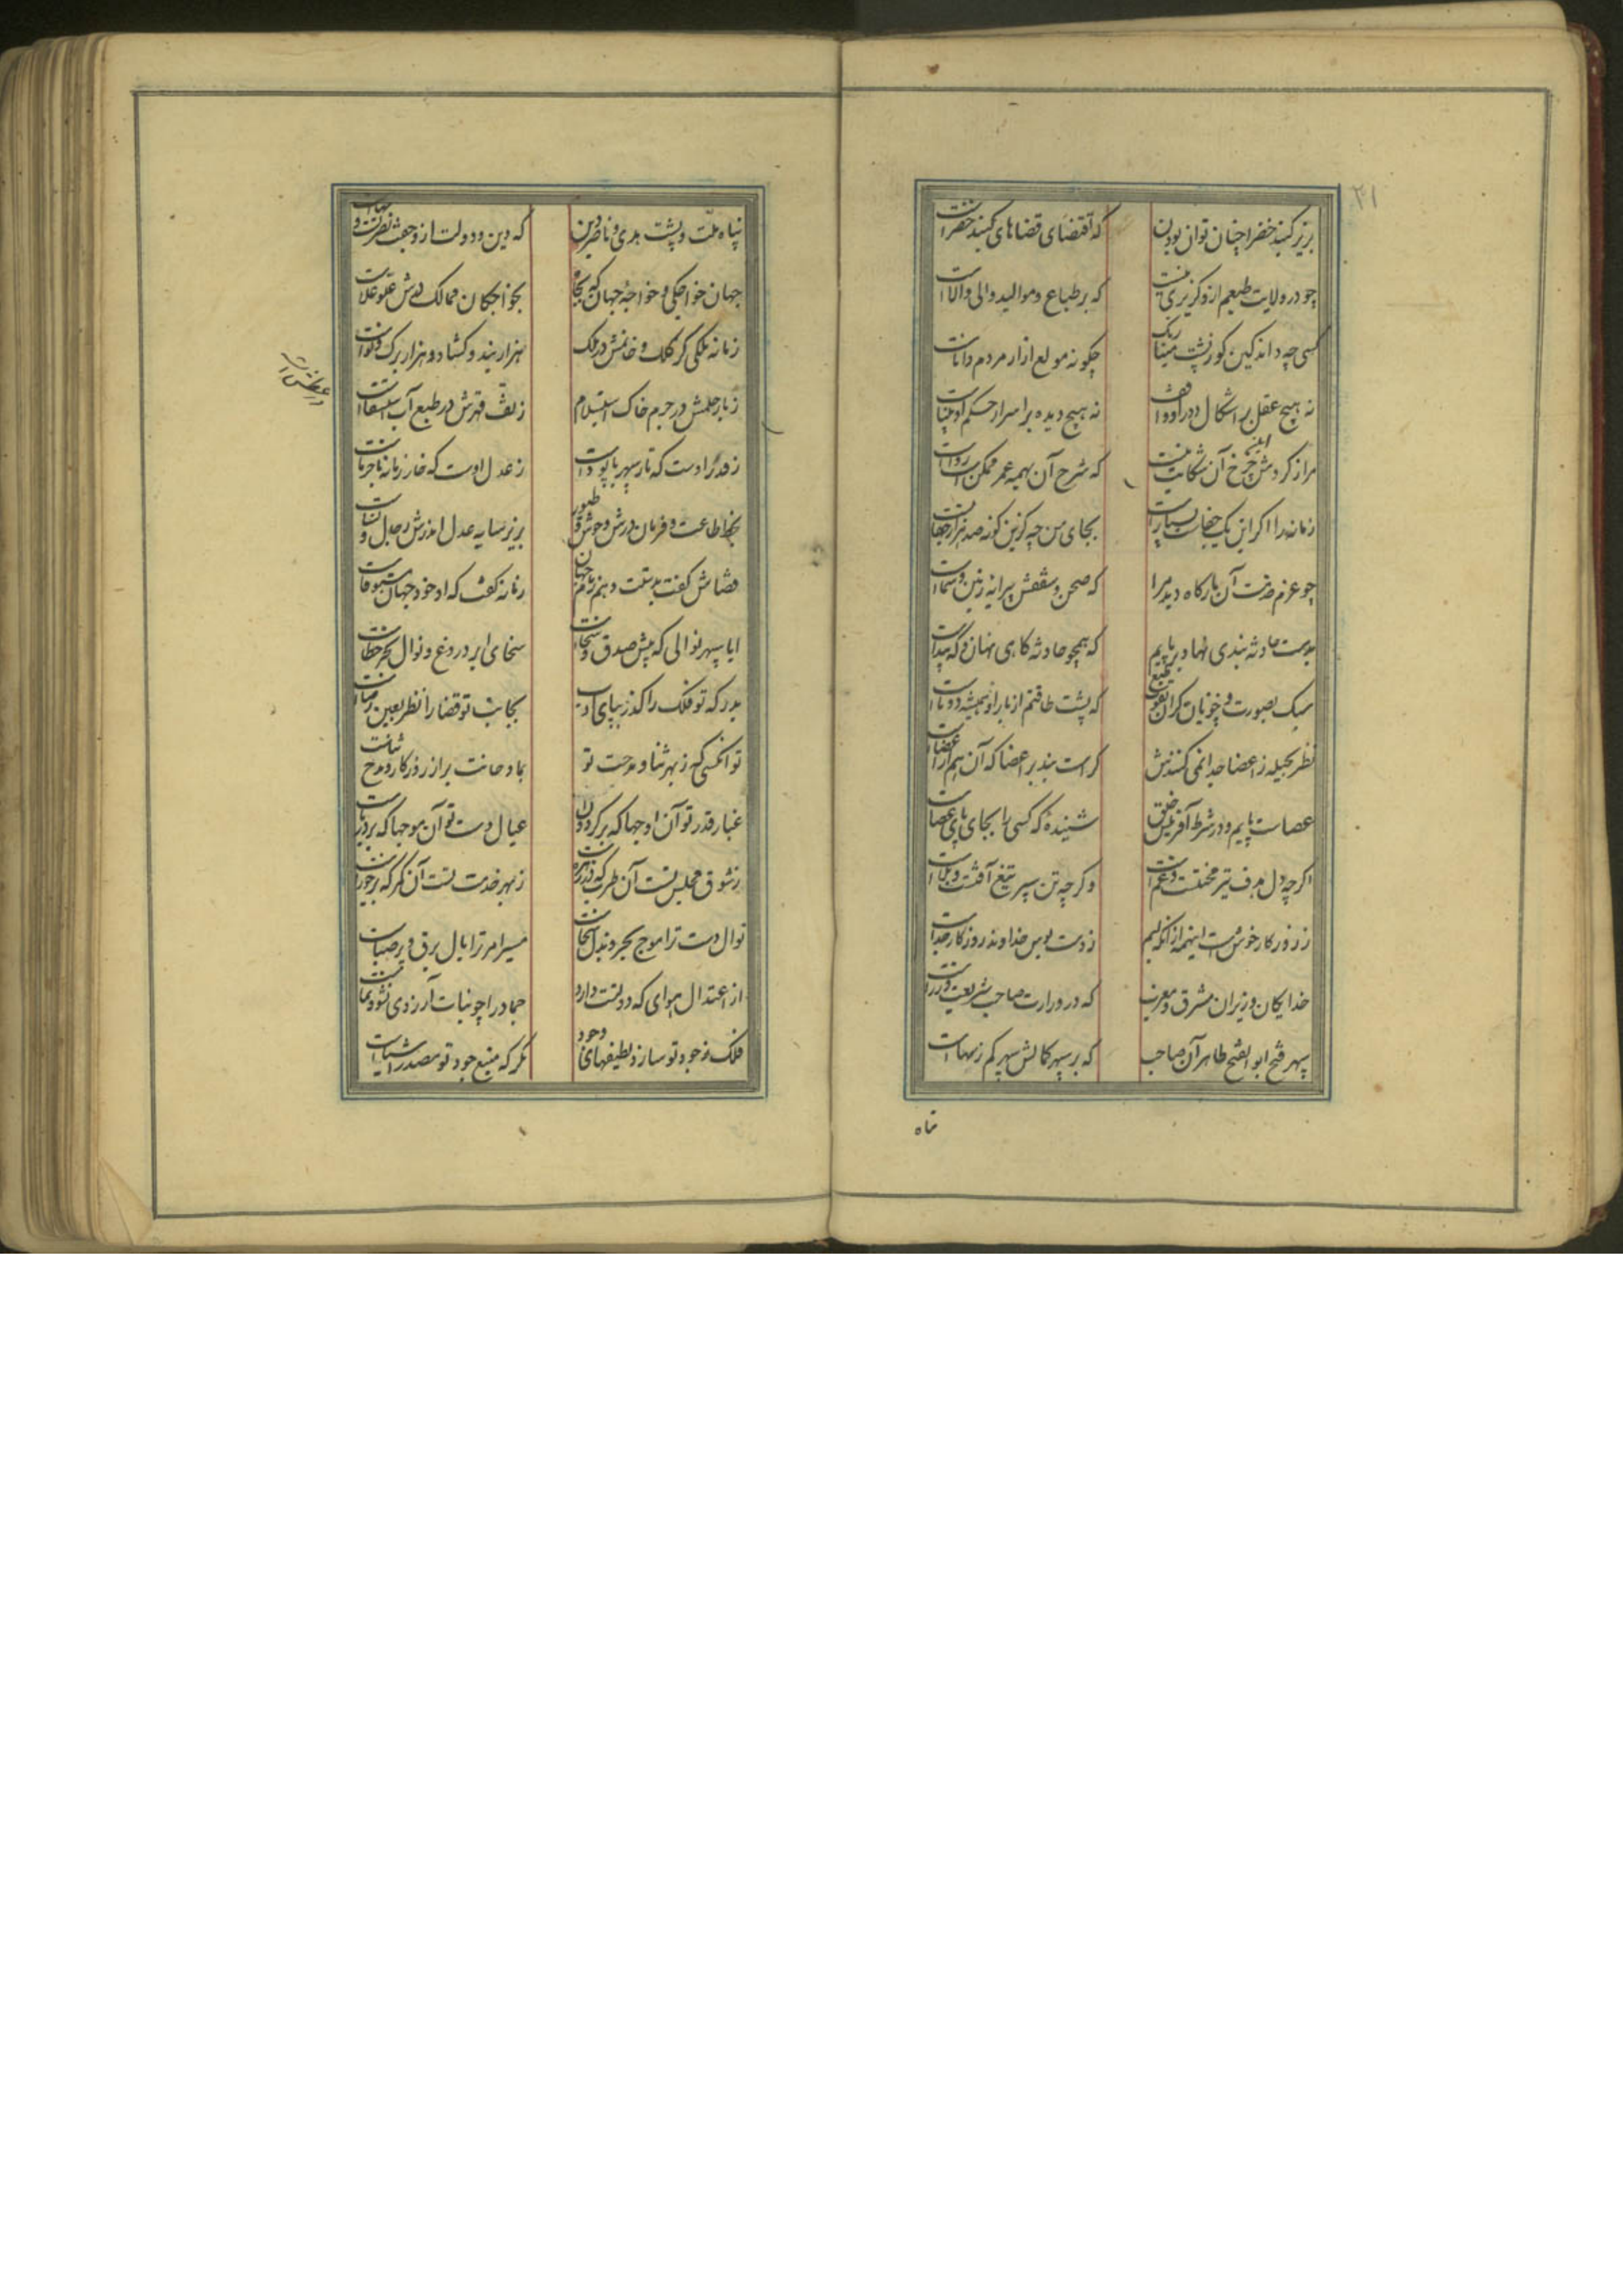 ۲۱
بزیر گنبد خضرا چنان توان بودن که اقتضای قضاهای گنبد خضراست
چو در ولایت طبعیم ازو گزیری نیست که بر طباع و موالید والی والاست
کسی چه داند کین کوژپشت مینا رنگ چگونه مولع ازار مردم داناست
نه هیچ عقل بر اشکال دور او واقف نه هیچ دیده بر اسرار حکم او بیناست
مرا ز گردش این چرخ آن شکایت نیست که شرح آن بهمه عمر ممکنست و رواست
زمانه را اگر این یک جفاست بسیارست بجای من چه کزین گونه صد هزار جفاست
چو عزم خدمت آن بارگاه دید مرا که صحن و سقفش پیرایه زمین و سماست
بدست حادثه بندی نهاد بر پایم که همچو حادثه گاهی نهان و گه پیداست
سبک بصورت و چونان گران بقوت طبع که پشت طاقتم از بار او همیشه دوتاست
نظر بحیله ز اعضا جدا نمی کندش کراست بند بر اعضا که آن هم از اعضاست
عصاست پایم و در شرط آفرینش خلق شنیدۀ که کسی را بجای پای عصاست
اگر چه دل هدف تیر محنتست و غم است وگر چه تن سپر تیغ آفتست و بلاست
ز روزگار خوش است اینهمه از آنکه لبم ز دست بوس خداوند روزگار جداست
خدایگان وزیران مشرق و مغرب که در وزارت صاحب شریعت وزراست
سپهر فتح ابو الفتح طاهر آن صاحب که بر سپهر کمالش سپهر کم ز سهاست
پناه ملت و پشت هدی و ناصر دین که دین و دولت ازو جفت نصرت و بهاست
جهان خواجگی و خواجۀ جهان که بجاه بخواجگان ممالک برش علو علاست
زمانه ملکی کز کلک و خاتمش در ملک هزار بند و گشاد و هزار برگ و نواست
ز بار حلمش در جرم خاک استسلام ز تف قهرش در طبع آب استسقاست
ز قدر اوست که تار سپهر با پودست ز عدل اوست که خار زمانه با خرماست
بخط طاعت و فرمان درش وحوش و طیور بزیر سایه عدل اندرش رجال و نساست
قضاش گفت بدستت دهم زمام جهان زمانه گفت که او خود جهان مستوفاست
ایا سپهر نوالی که پیش صدق و سخات سخای ابر دروغ و نوال بحر خطاست
بدرگه تو فلک را گذر بپای ادب بجانب تو قضا را نظر بعین رضاست
تو آنکسی که ز بهر ثنا و مدحت تو بماو حانت پر از روزگار و مدح ثناست
غبار قدر تو آن اوجها که بر گردون عیال دست تو آن موجها که بر دریاست
ز شوق مجلس تست آن طرب که در زهره ست ز بهر خدمت تست آن کمر که بر جوزاست
نوال دست ترا موج بحر و بذل سخاست مسیر امر ترا بال برق و پر صباست
از اعتدال هوای که دولتت دارد جماد را چو نبات آرزوی نشو و نماست
فلک ز جود تو سازد لطیفهای وجود مگر که منبع جود تو مصدر اشیاست
پناه